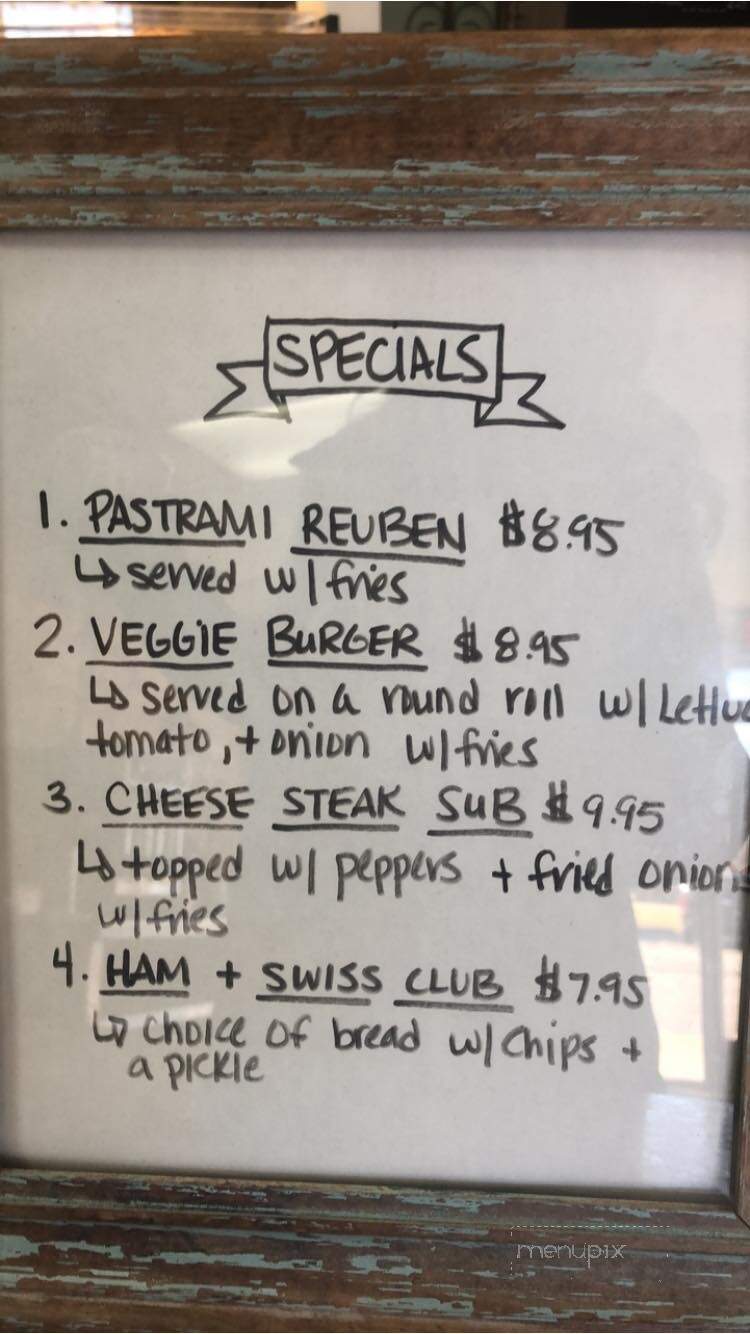 SPECIALS
1. PASTRAMI REUBEN $8.95
↳ served w/ fries
2. VEGGIE BURGER $8.95
↳ served on a round roll w/ Lettuc
tomato, + onion w/ fries
3. CHEESE STEAK SUB $9.95
↳ topped w/ peppers + fried onion
w/ fries
4. HAM + SWISS CLUB $7.95
↳ choice of bread w/ chips +
a pickle
menupix